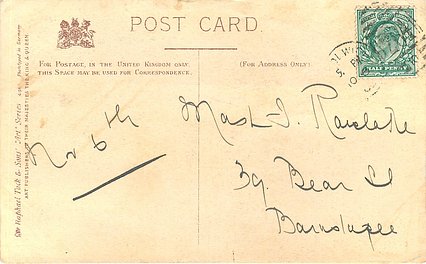 POST CARD
FOR POSTAGE, IN THE UNITED KINGDOM ONLY,
THIS SPACE MAY BE USED FOR CORRESPONDENCE.
(FOR ADDRESS ONLY.)
HALF PENNY
Raphael Tuck & Sons' "Art" Series
ART PUBLISHERS TO THEIR MAJESTIES THE KING & QUEEN
No 6 th
Mast. J.
39, Bear St